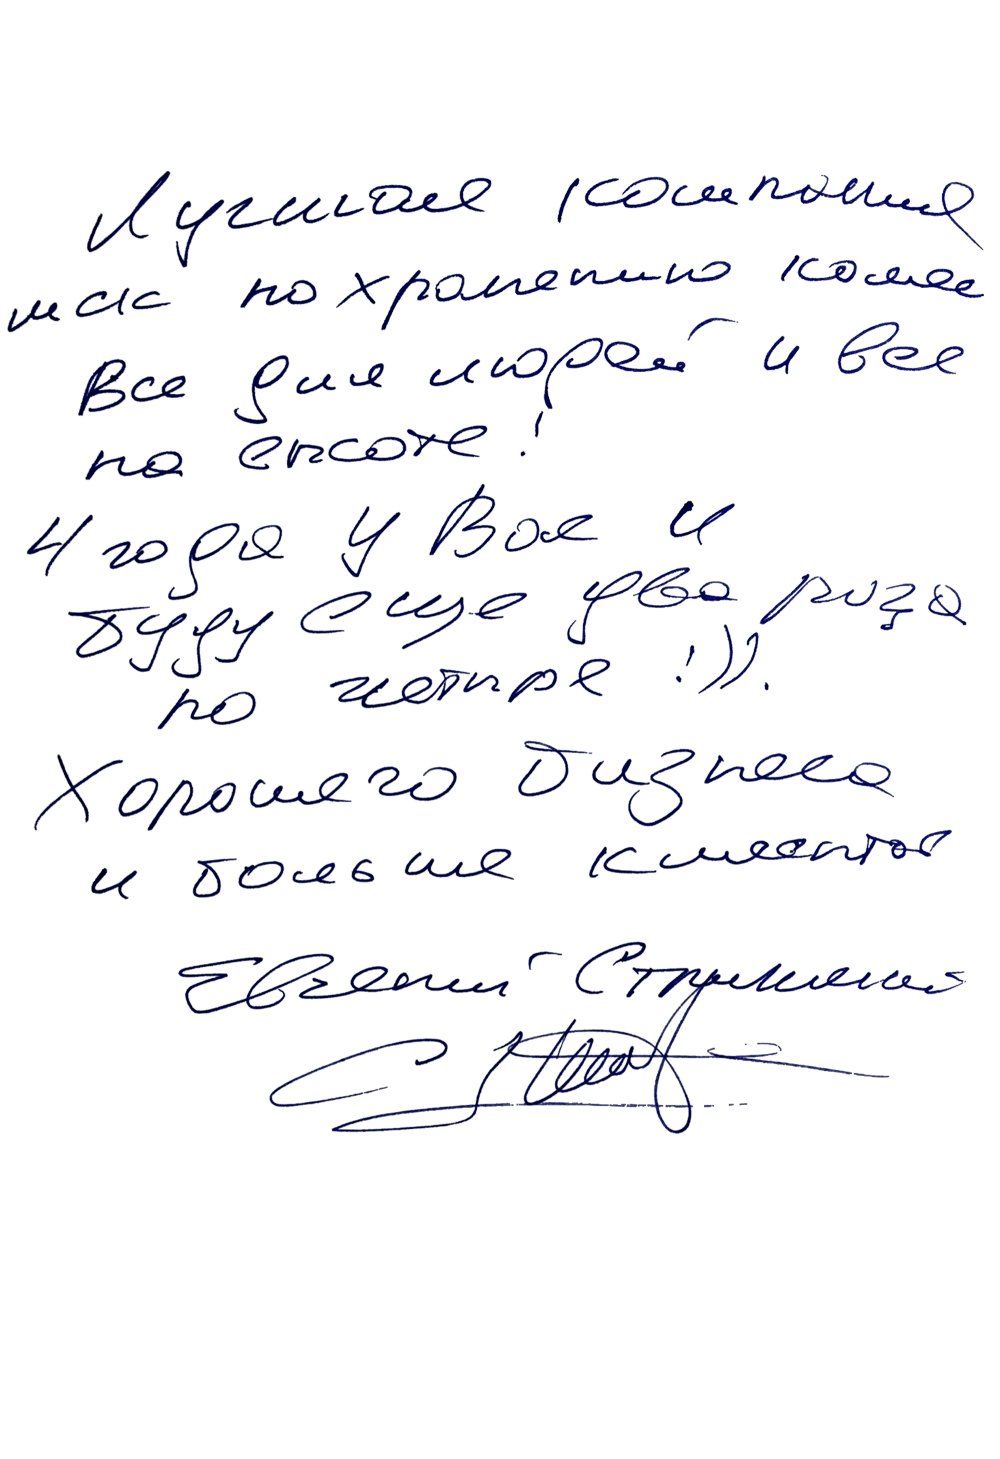 Лучшая компания
мск по хранению колес
Все для людей и все
на высоте!
4 года у Вас и
буду еще два раза
по четыре!)).
Хорошего бизнеса
и больше клиентов
Евгений